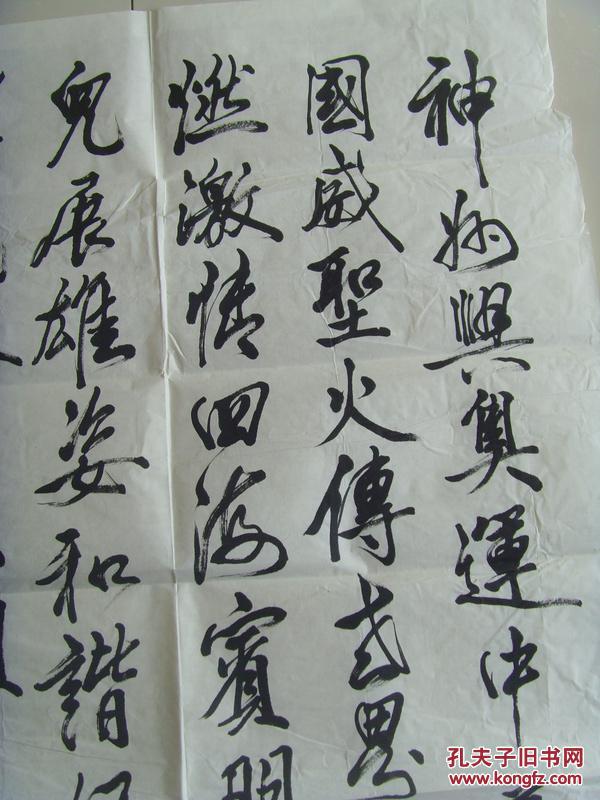 神州興奧運中
國威聖火傳世界
燃激情四海賓朋
兒展雄姿和諧
孔夫子旧书网
www.kongfz.com